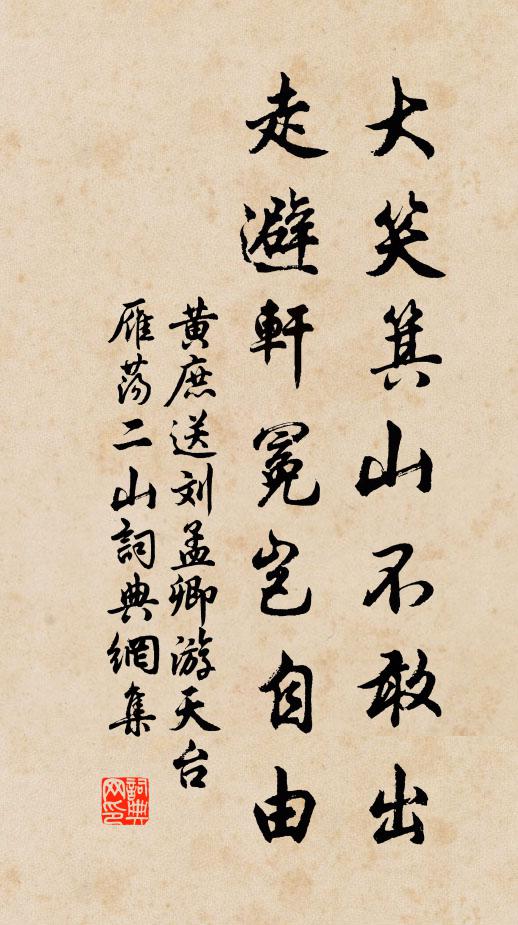 大笑箕山不敢出
走避軒冕岂自由
黄庶送刘孟卿游天台
雁荡二山詞典網集
詞典网印